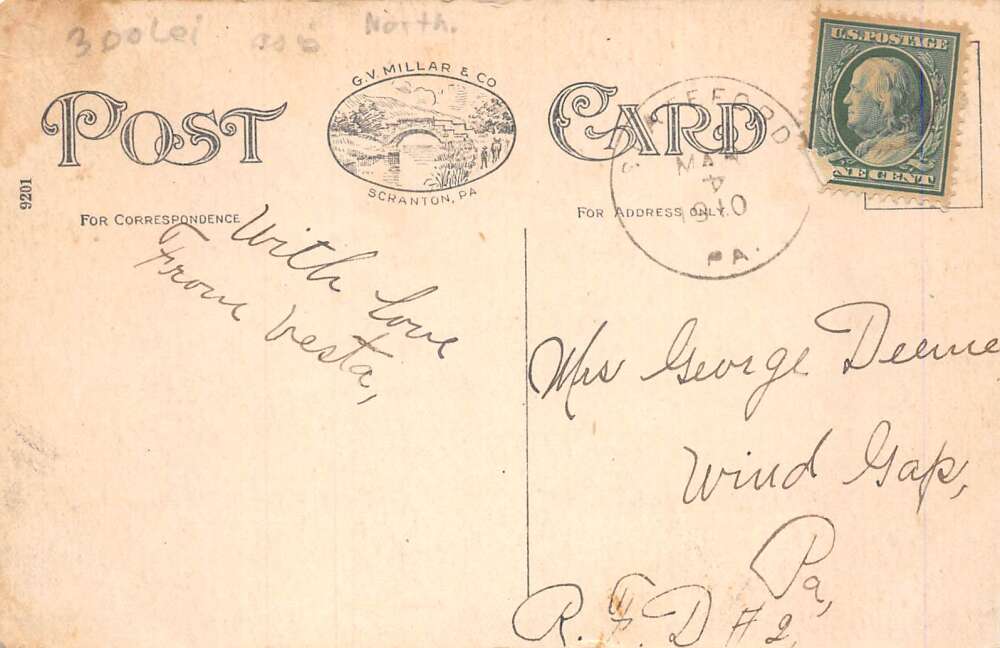 North.
G.V. MILLAR & CO
SCRANTON, PA
POST CARD
U.S. POSTAGE
NE CENT
9201
FOR CORRESPONDENCE
FOR ADDRESS ONLY.
4
1910
PA.
With Love
From Vesta,
Mrs George Deeme
Wind Gap,
Pa,
R. F. D #2,